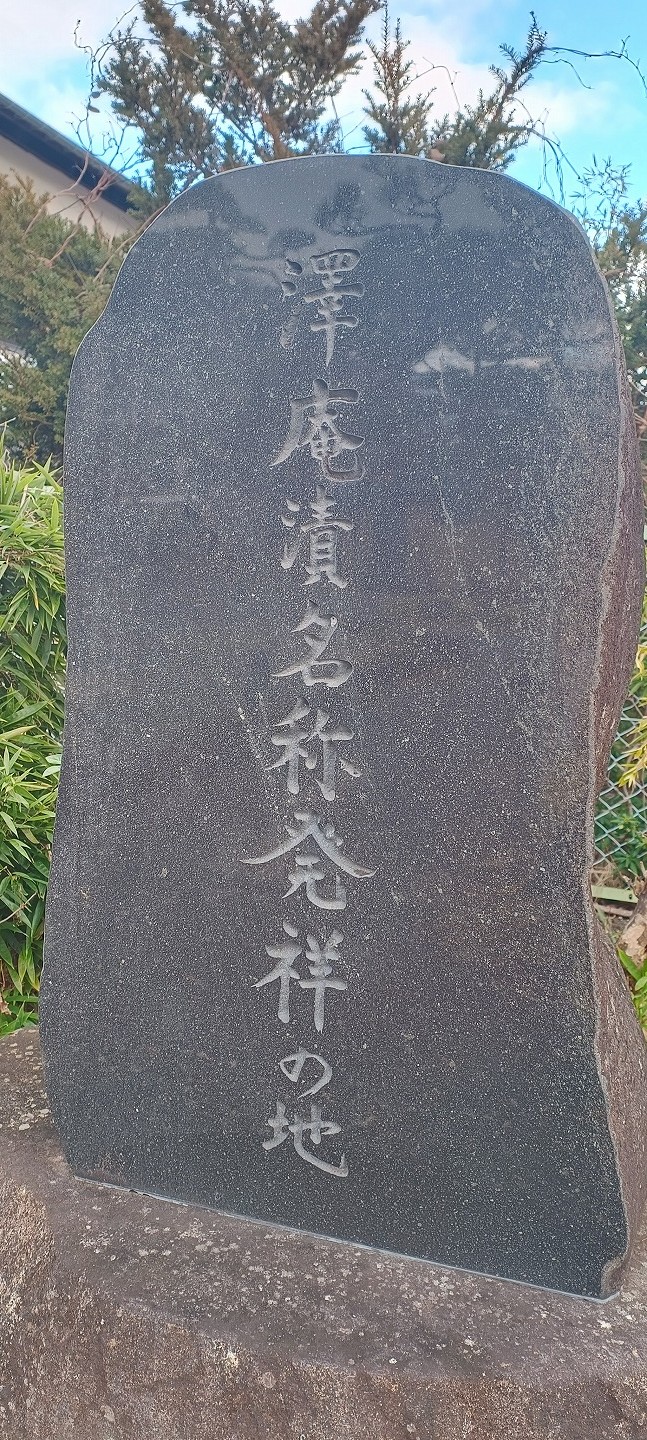 澤庵漬名称発祥の地